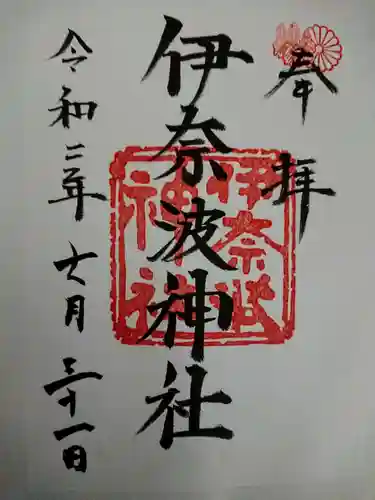 奉拝
伊奈波神社
伊奈波
神社
令和二年十月三十一日